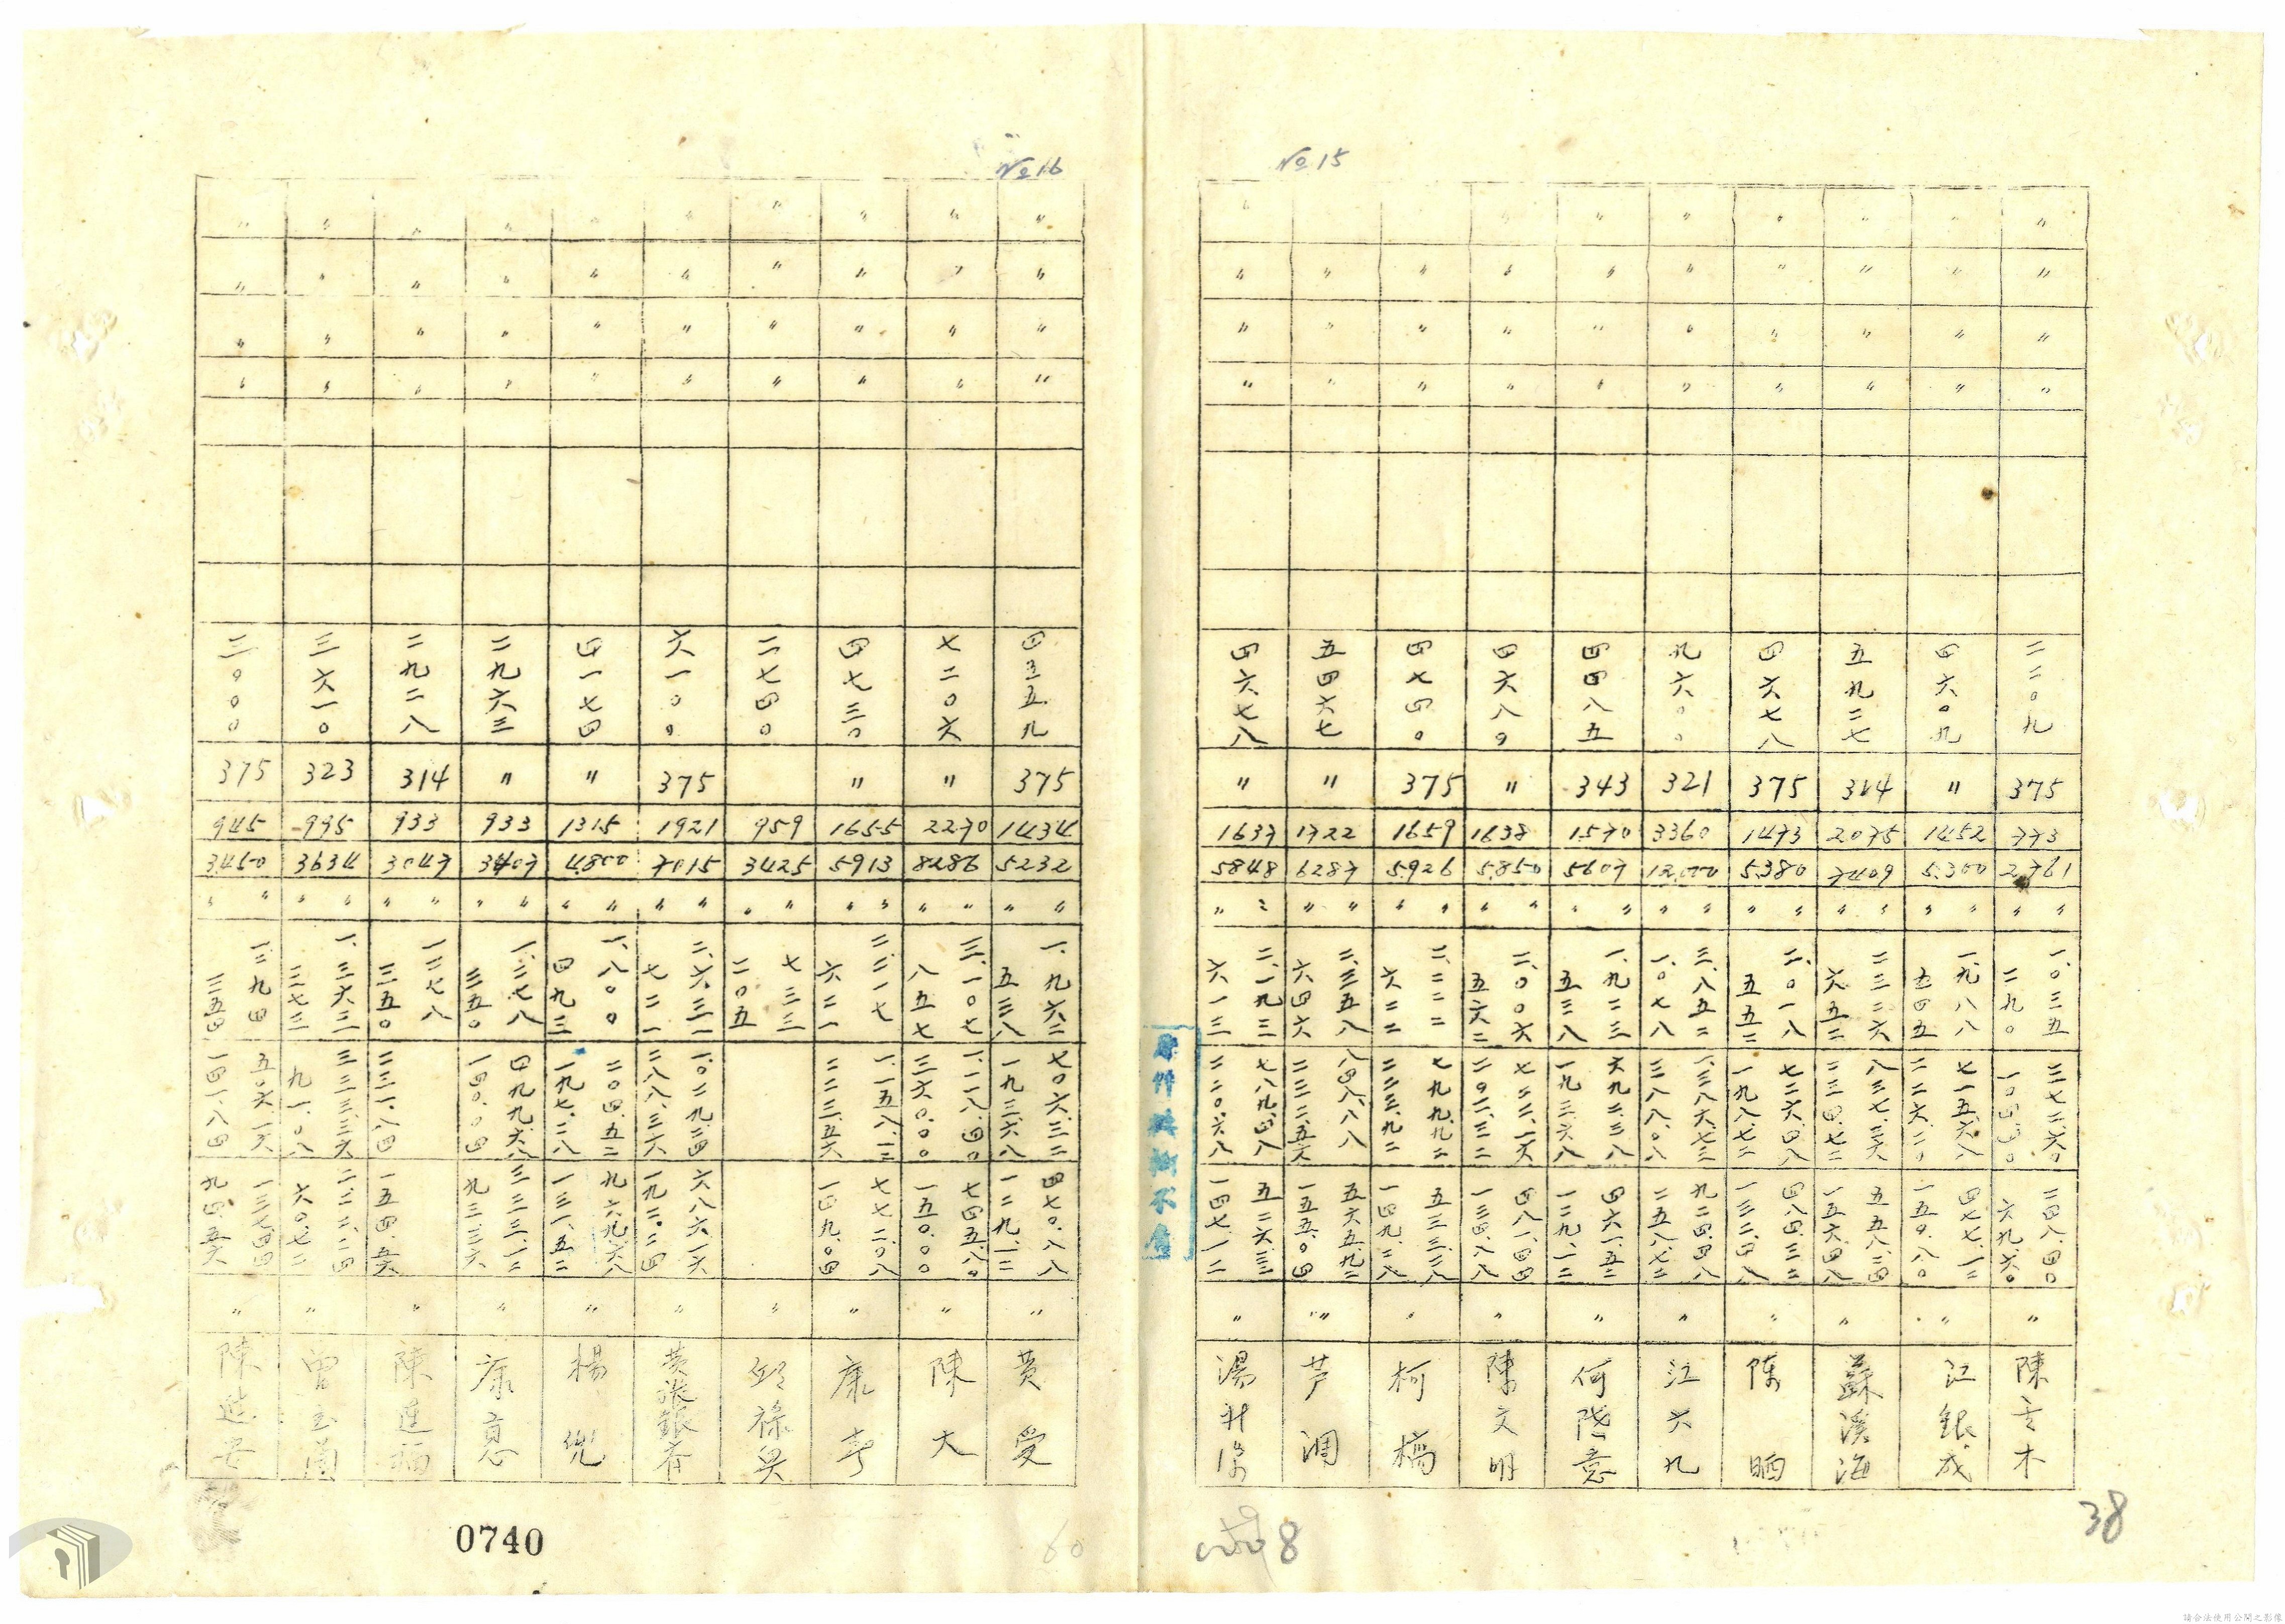 №15
〃 〃 〃 〃 二二〇九 375 773 2761 〃 〃 一、〇三五 二九〇 三七二、六〇 一〇四、三〇 二四八、四〇 六九、六〇 〃 陳 木
〃 〃 〃 〃 四六〇九 〃 1452 5300 〃 〃 一、九八八 五四五 七一五、六八 二二六、二〇 四七七、一二 一五〇、八〇 〃 江銀成
〃 〃 〃 〃 五九二七 314 2075 7409 〃 〃 二三二六 六五二 八三七、三六 二三四、七二 五五八、二四 一五六、四八 〃 蘇溪海
〃 〃 〃 〃 四六七八 375 1473 5380 〃 〃 二、〇一八 五五三 七二六、四八 一九八、七二 四八四、三二 一三二、四八 〃 陳晒
〃 〃 〃 〃 九六〇〇 321 3360 12,000 〃 〃 三、八五二 一、〇七八 一、三八六、七二 三八八、〇八 九二四、四八 二五八、七二 〃 江六九
〃 〃 〃 〃 四四八五 343 1570 5607 〃 〃 一、九二三 五三八 六九二、二八 一九三、六八 四六一、五二 一二九、一二 〃 何 意
〃 〃 〃 〃 四六八〇 〃 1638 5850 〃 〃 二、〇〇六 五六二 七二二、一六 二〇二、三二 四八一、四四 一三四、八八 〃 陳文明
〃 〃 〃 〃 四七四〇 375 1659 5926 〃 〃 二、二二二 六二二 七九九、九二 二二三、九二 五三三、二八 一四九、二八 〃 柯橋
〃 〃 〃 〃 五四六七 〃 1722 6287 〃 〃 二、三五八 六四六 八四八、八八 二三二、五六 五六五、九二 一五五、〇四 〃 芦調
〃 〃 〃 〃 四六七八 〃 1637 5848 〃 〃 二、一九三 六一三 七八九、四八 二二〇、六八 五二六、三二 一四七、一二 〃 湯
38
8
№16
〃 〃 〃 〃 四三五九 375 1434 5232 〃 〃 一、九六二 五三八 七〇六、三二 一九三、六八 四七〇、八八 一二九、一二 〃 黄受
〃 〃 〃 〃 七二〇六 〃 2270 8286 〃 〃 三、一〇七 八五七 一、一一八、四〇 三六〇、〇〇 七四五、八〇 一五〇、〇〇 〃 陳大
〃 〃 〃 〃 四七三〇 〃 1655 5913 〃 〃 二、二一七 六二一 一、一五八、一二 二二三、五六 七七二、〇八 一四九、〇四 〃 康
〃 〃 〃 〃 二七四〇 959 3425 〃 〃 七三三 二〇五 〃 邱祿
〃 〃 〃 〃 六一〇〇 375 1921 7015 〃 〃 二、六三一 七二一 一、〇二九、二四 二八八、三六 六八六、一六 一九二、二四 〃 黄張銀
〃 〃 〃 〃 四一七四 〃 1315 4800 〃 〃 一、八〇〇 四九三 二〇四、五二 一九七、二八 九六九、六八 一三一、五二 〃 楊兜
〃 〃 〃 〃 二九六三 〃 933 3407 〃 〃 一、二七八 三五〇 四九九、六八 一四〇、〇四 三三三、一二 九三、三六 〃 康意
〃 〃 〃 〃 二九二八 314 933 3047 〃 〃 一二七八 三五〇 二三一、八四 一五四、五六 〃 陳
〃 〃 〃 〃 三六一〇 323 995 3634 〃 〃 一、三六二 三七三 三三三、三六 九一、〇八 二二二、二四 六〇、七二 〃 曾
〃 〃 〃 〃 三〇〇〇 375 945 3450 〃 〃 一二九四 三五四 五〇六、一六 一四一、八四 一三七、四四 九四、五六 〃 陳進安
0740
60
請合法使用公開之影像